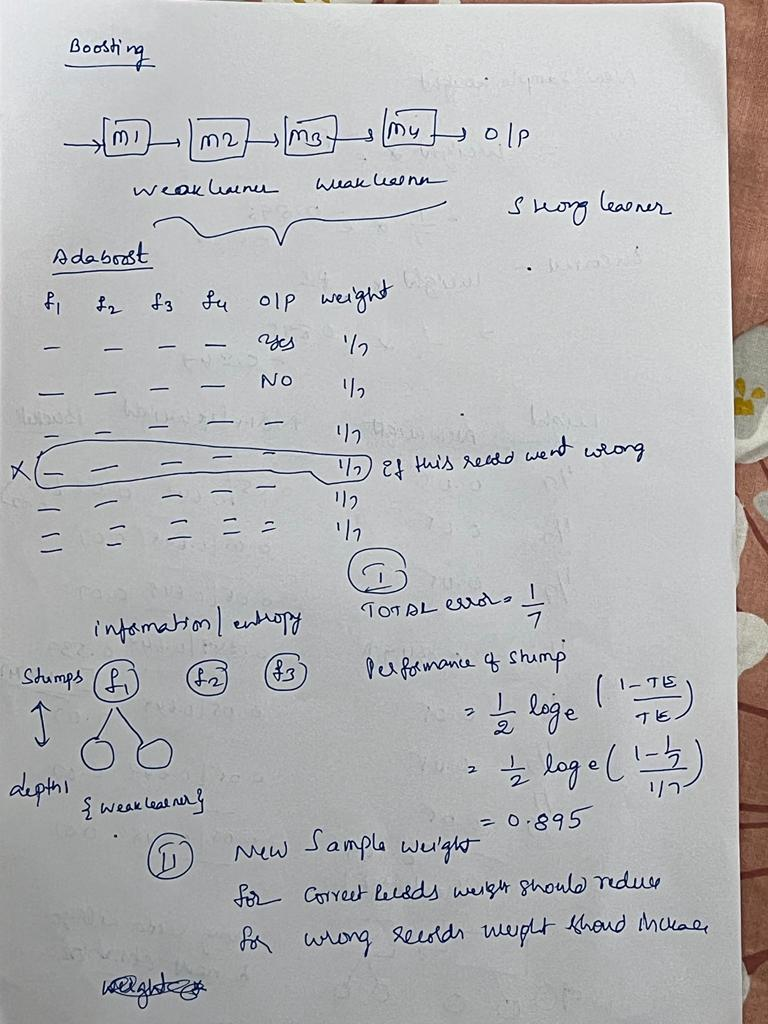 Boosting
m1 m2 m3 m4 O/P
weak learner weak learner
Strong learner
Adaboost
f1 f2 f3 f4 O/P weight
— — — — Yes 1/7
— — — — NO 1/7
— — — — — 1/7
X — — — — — 1/7 if this record went wrong
— — — — — 1/7
= = = = = 1/7
I
TOTAL error = 1/7
information/entropy
Stumps f1 f2 f3
Performance of stump
= 1/2 loge (1-TE/TE)
= 1/2 loge (1-1/7 / 1/7)
depth 1
{weak learner}
= 0.895
II New Sample weight
for correct records weight should reduce
for wrong records weight should increase